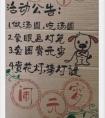 活动公告:
1做汤圆,吃汤圆
2.会眼画灯笼
3.全园赏元宵
4.赏花灯,猜灯谜
闹元宵